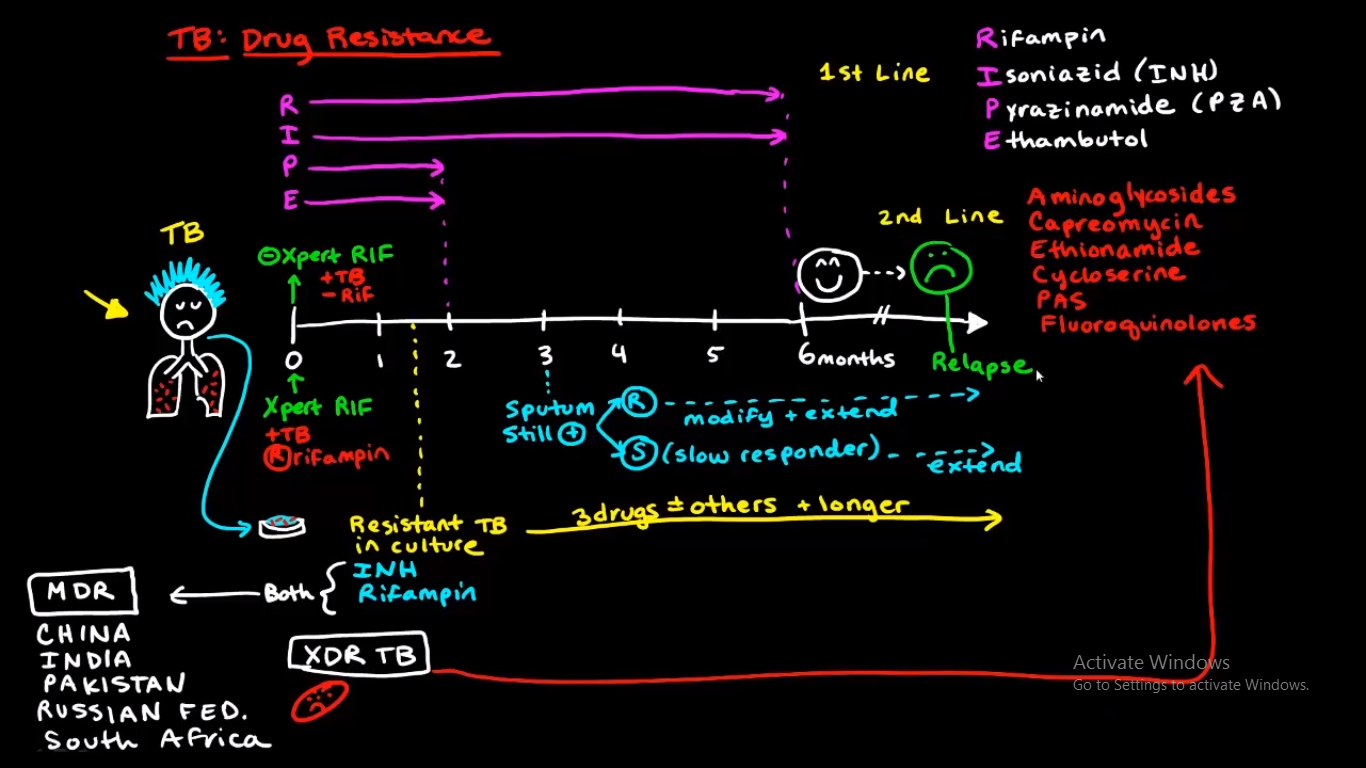 TB: Drug Resistance
1st Line
Rifampin
Isoniazid (INH)
Pyrazinamide (PZA)
Ethambutol
R
I
P
E
2nd Line
Aminoglycosides
Capreomycin
Ethionamide
Cycloserine
PAS
Fluoroquinolones
TB
⊖Xpert RIF
+TB
- RiF
0 1 2 3 4 5 6 months
Relapse
Xpert RIF
+TB
Ⓡ rifampin
Sputum
Still ⊕
Ⓡ modify + extend
Ⓢ (slow responder) extend
Resistant TB
in culture
3 drugs ± others + longer
INH
Rifampin
Both
MDR
CHINA
INDIA
PAKISTAN
RUSSIAN FED.
South Africa
XDR TB
Activate Windows
Go to Settings to activate Windows.